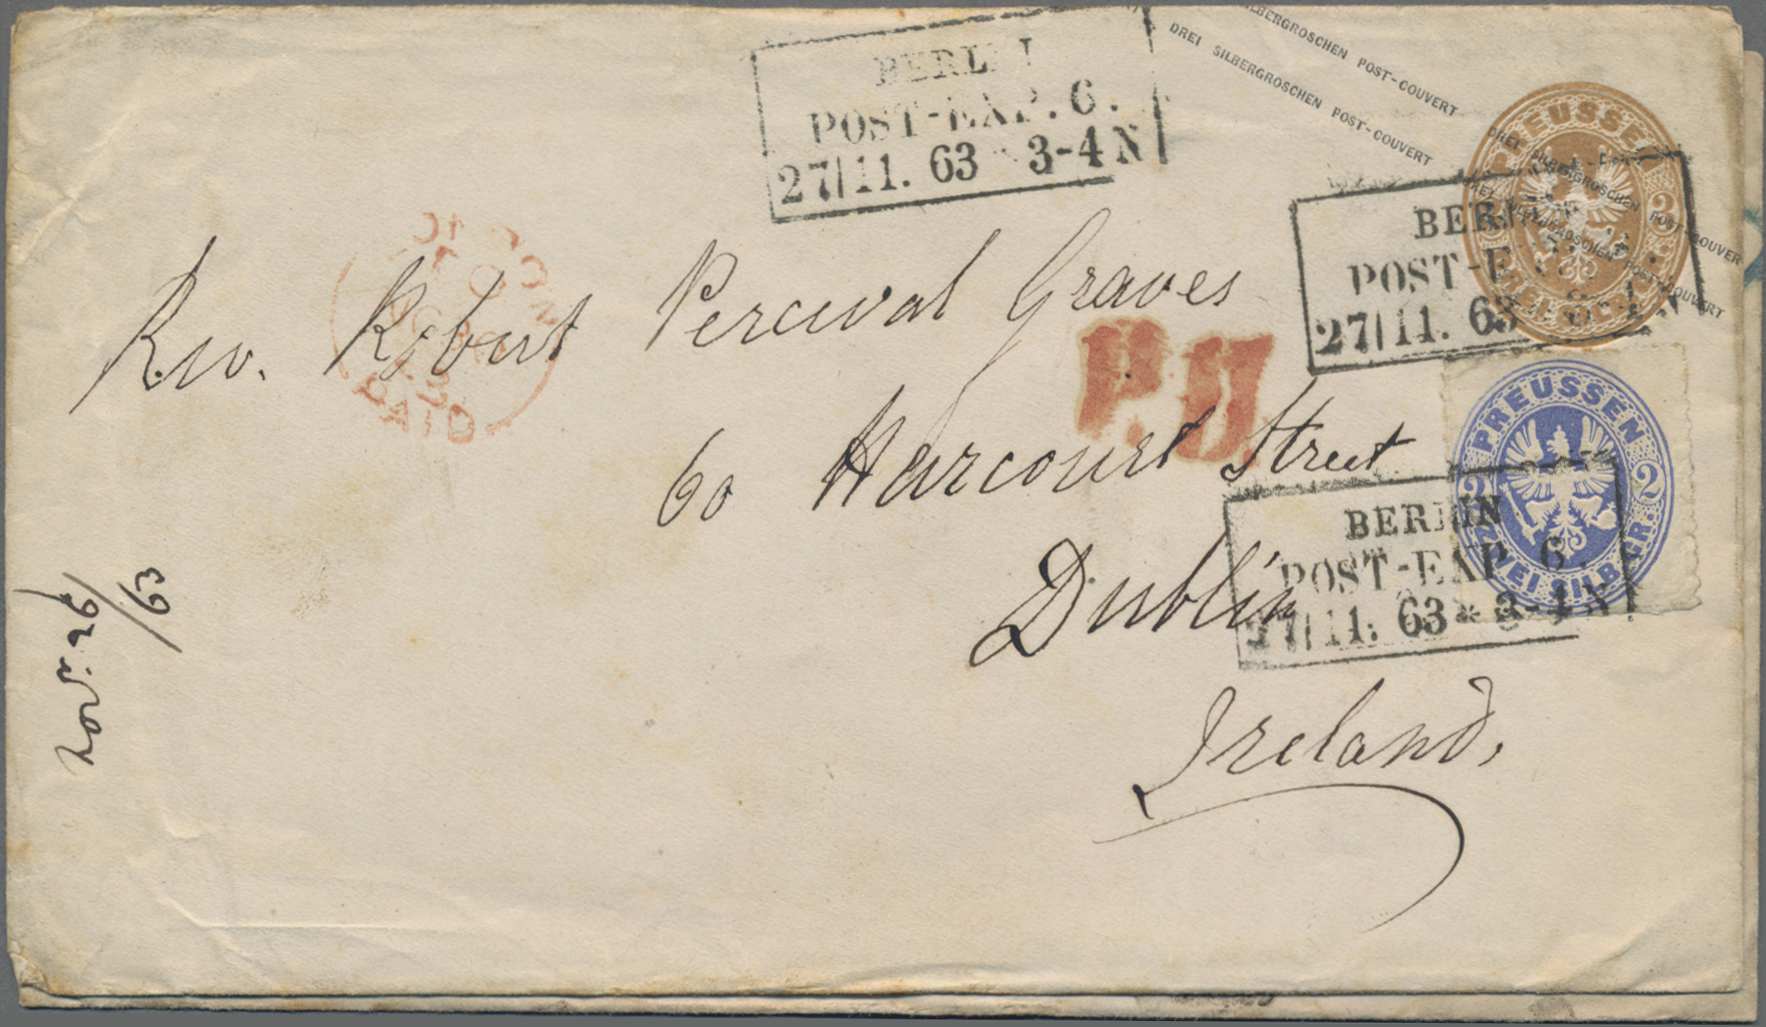 BERLIN
POST-EXP. 6.
27/11. 63 3-4 N
SILBERGROSCHEN POST-COUVERT
DREI SILBERGROSCHEN POST-COUVERT
DREI SILBERGROSCHEN POST-COUVERT
DREI SILBERGROSCHEN POST-COUVERT
PREUSSEN
BERLIN
POST-EXP. 6.
27/11. 63 3-4 N
PAID
Rev. Robert Percival Graves
P.D.
60 Harcourt Street
Dublin
Ireland.
PREUSSEN
2 2
ZWEI SILB. GR.
BERLIN
POST-EXP. 6.
27/11. 63 * 3-4 N
Nov. 29/63